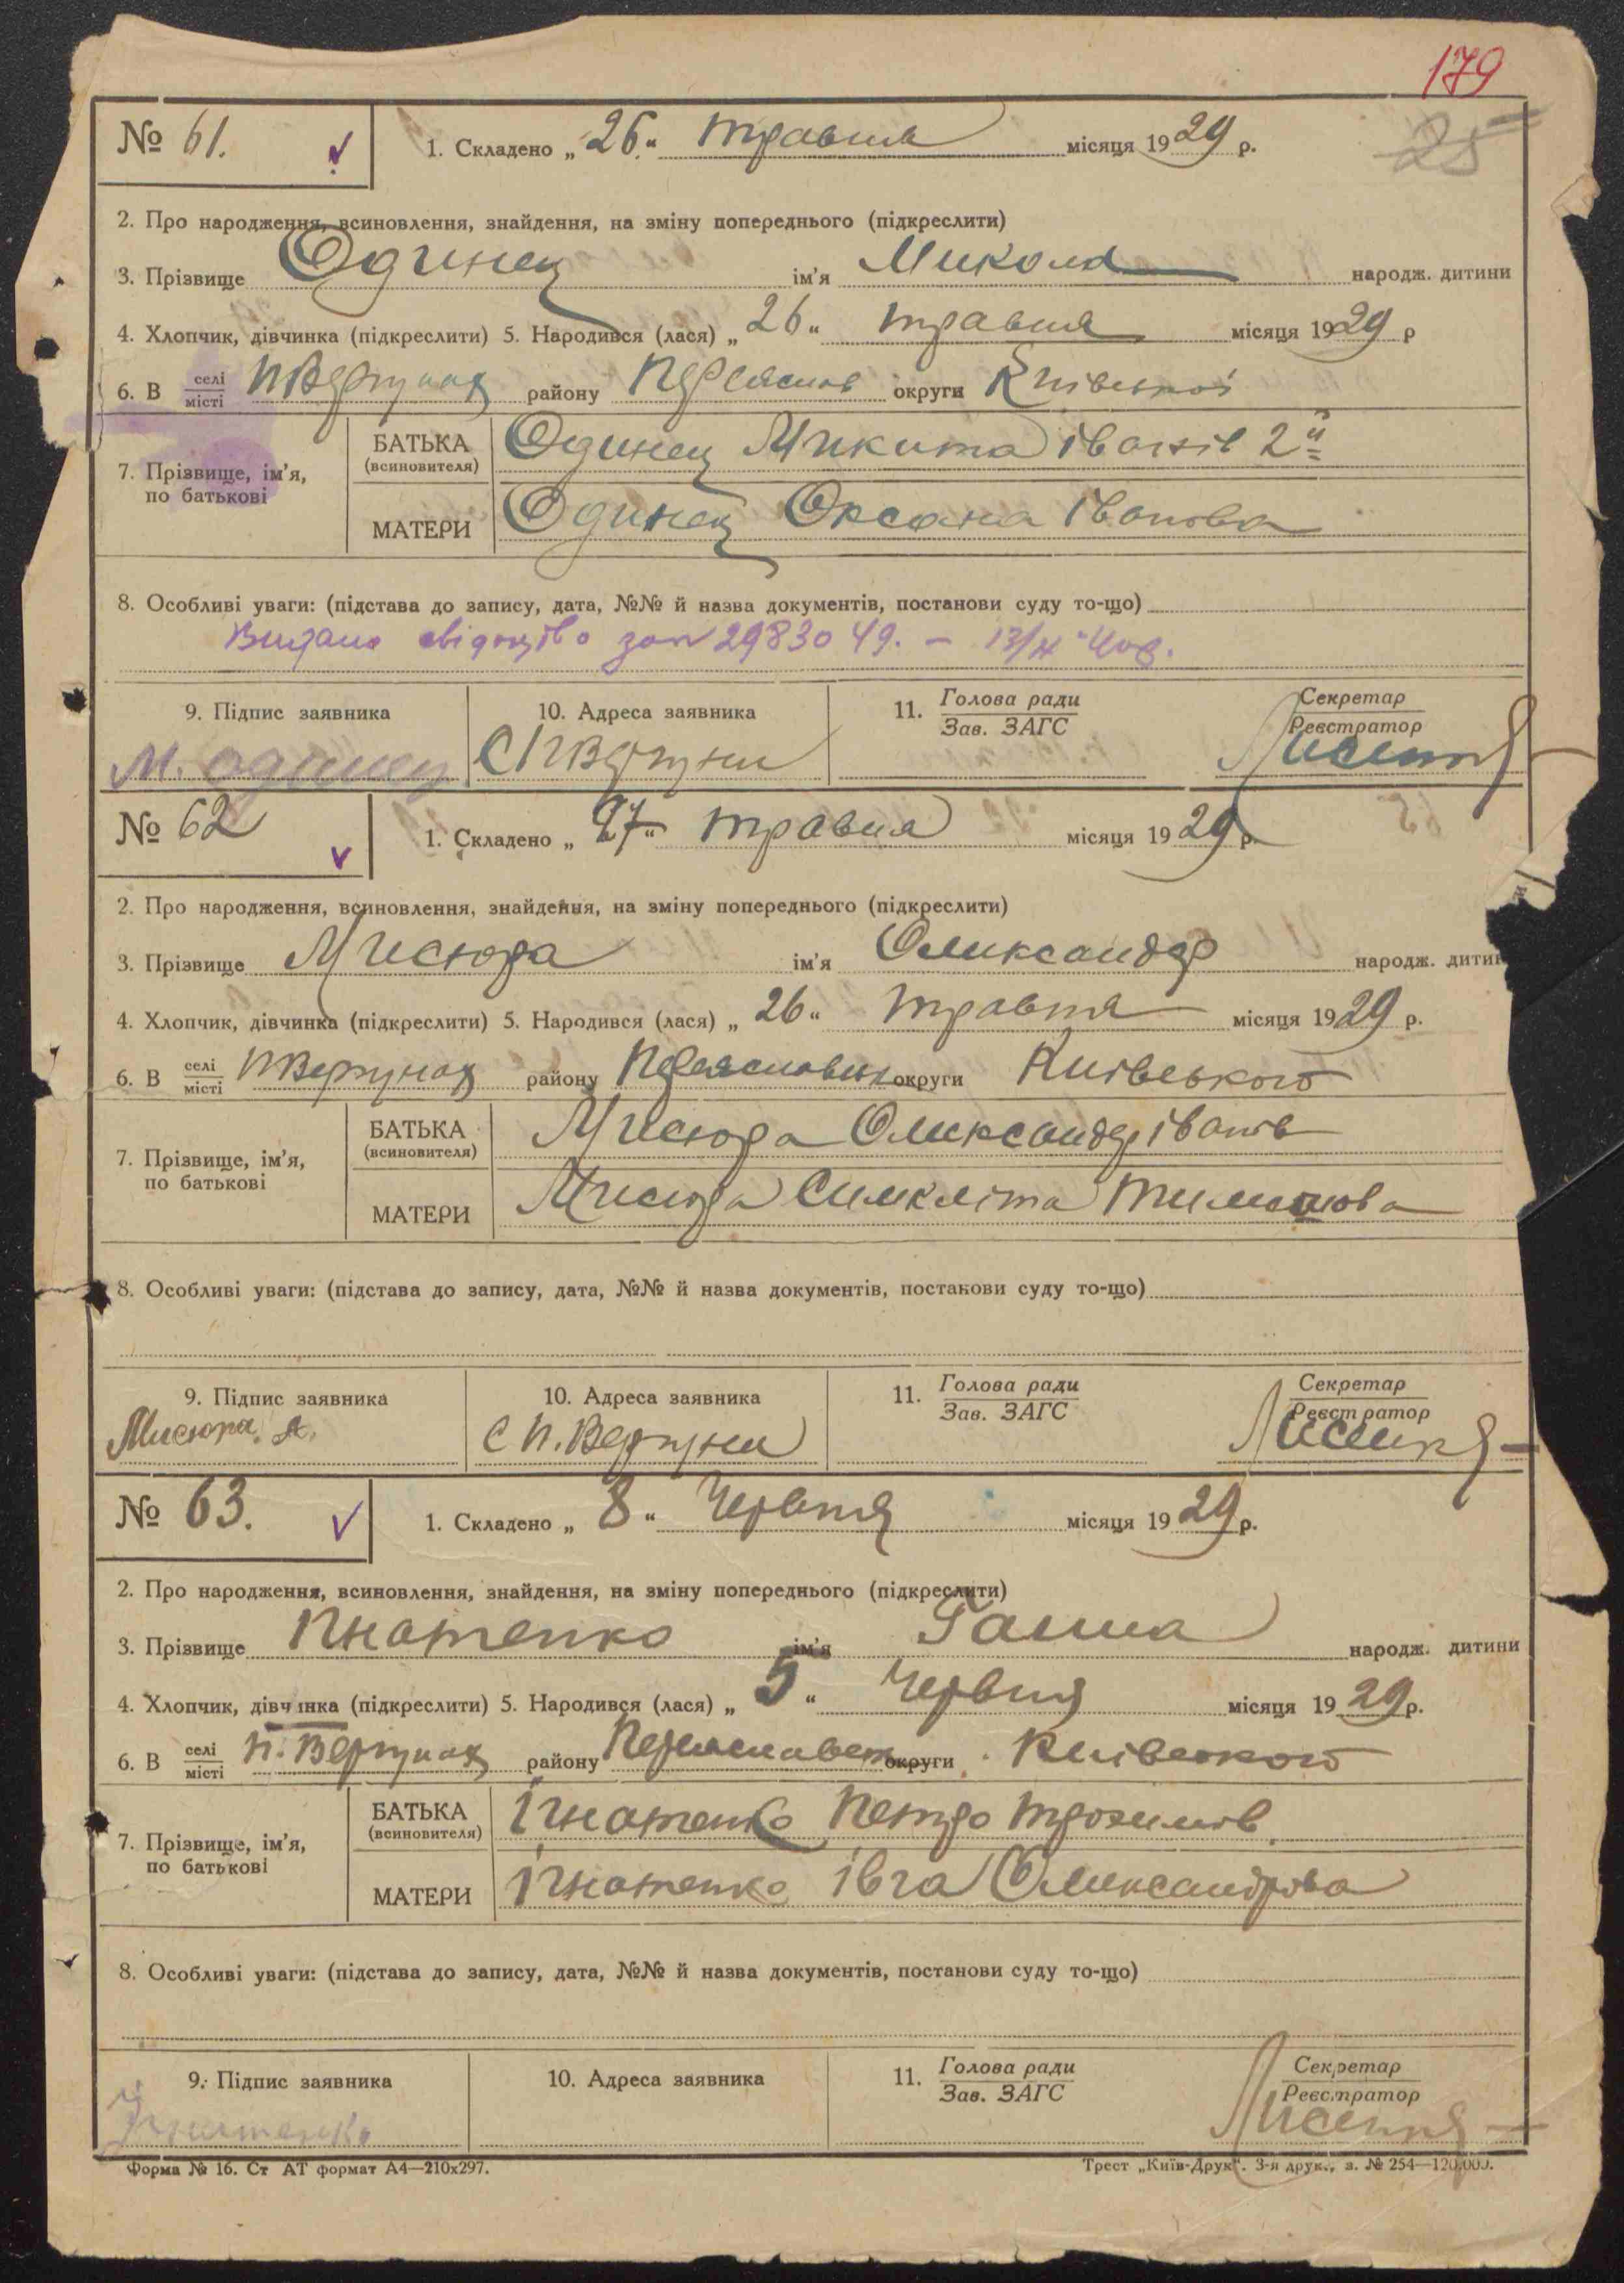 179
№ 61.
1. Складено „26“ травня місяця 1929 р.
25
2. Про народження, всиновлення, знайдення, на зміну попереднього (підкреслити)
3. Прізвище Одинец ім'я Микола народж. дитини
4. Хлопчик, дівчинка (підкреслити) 5. Народився (лася) „26“ травня місяця 1929 р
6. В селі/місті району округи Київської
7. Прізвище, ім'я, по батькові
БАТЬКА (всиновителя) Одинец Микита Іванів 2й
МАТЕРИ Одинец Оксана Іванова
8. Особливі уваги: (підстава до запису, дата, №№ й назва документів, постанови суду то-що)
Видано свідоцтво 29830 49. –
9. Підпис заявника
10. Адреса заявника
11. Голова ради/Зав. ЗАГС
Секретар/Реєстратор
М. Одинец
№ 62
1. Складено „27“ травня місяця 1929 р.
2. Про народження, всиновлення, знайдення, на зміну попереднього (підкреслити)
3. Прізвище Мисюра ім'я Олександр народж. дитин
4. Хлопчик, дівчинка (підкреслити) 5. Народився (лася) „26“ травня місяця 1929 р.
6. В селі/місті П Вергунах району округи Київського
7. Прізвище, ім'я, по батькові
БАТЬКА (всиновителя) Мисюра Олександр Іванів
МАТЕРИ Мисюра Симкліта
8. Особливі уваги: (підстава до запису, дата, №№ й назва документів, постанови суду то-що)
9. Підпис заявника
10. Адреса заявника
11. Голова ради/Зав. ЗАГС
Секретар/Реєстратор
Мисюра. А.
С П. Вергуни
№ 63.
1. Складено „8“ Червня місяця 1929 р.
2. Про народження, всиновлення, знайдення, на зміну попереднього (підкреслити)
3. Прізвище Ігнатенко ім'я Ганна народж. дитини
4. Хлопчик, дівчинка (підкреслити) 5. Народився (лася) „5“ Червня місяця 1929 р.
6. В селі/місті П. Вергунах району округи Київського
7. Прізвище, ім'я, по батькові
БАТЬКА (всиновителя) Ігнатенко Петро Трохимів
МАТЕРИ Ігнатенко Івга Олександрова
8. Особливі уваги: (підстава до запису, дата, №№ й назва документів, постанови суду то-що)
9. Підпис заявника
10. Адреса заявника
11. Голова ради/Зав. ЗАГС
Секретар/Реєстратор
Ігнатенко
Форма № 16. Ст АТ формат А4—210х297.
Трест „Київ-Друк“. 3-я друк., з. № 254—120.000.